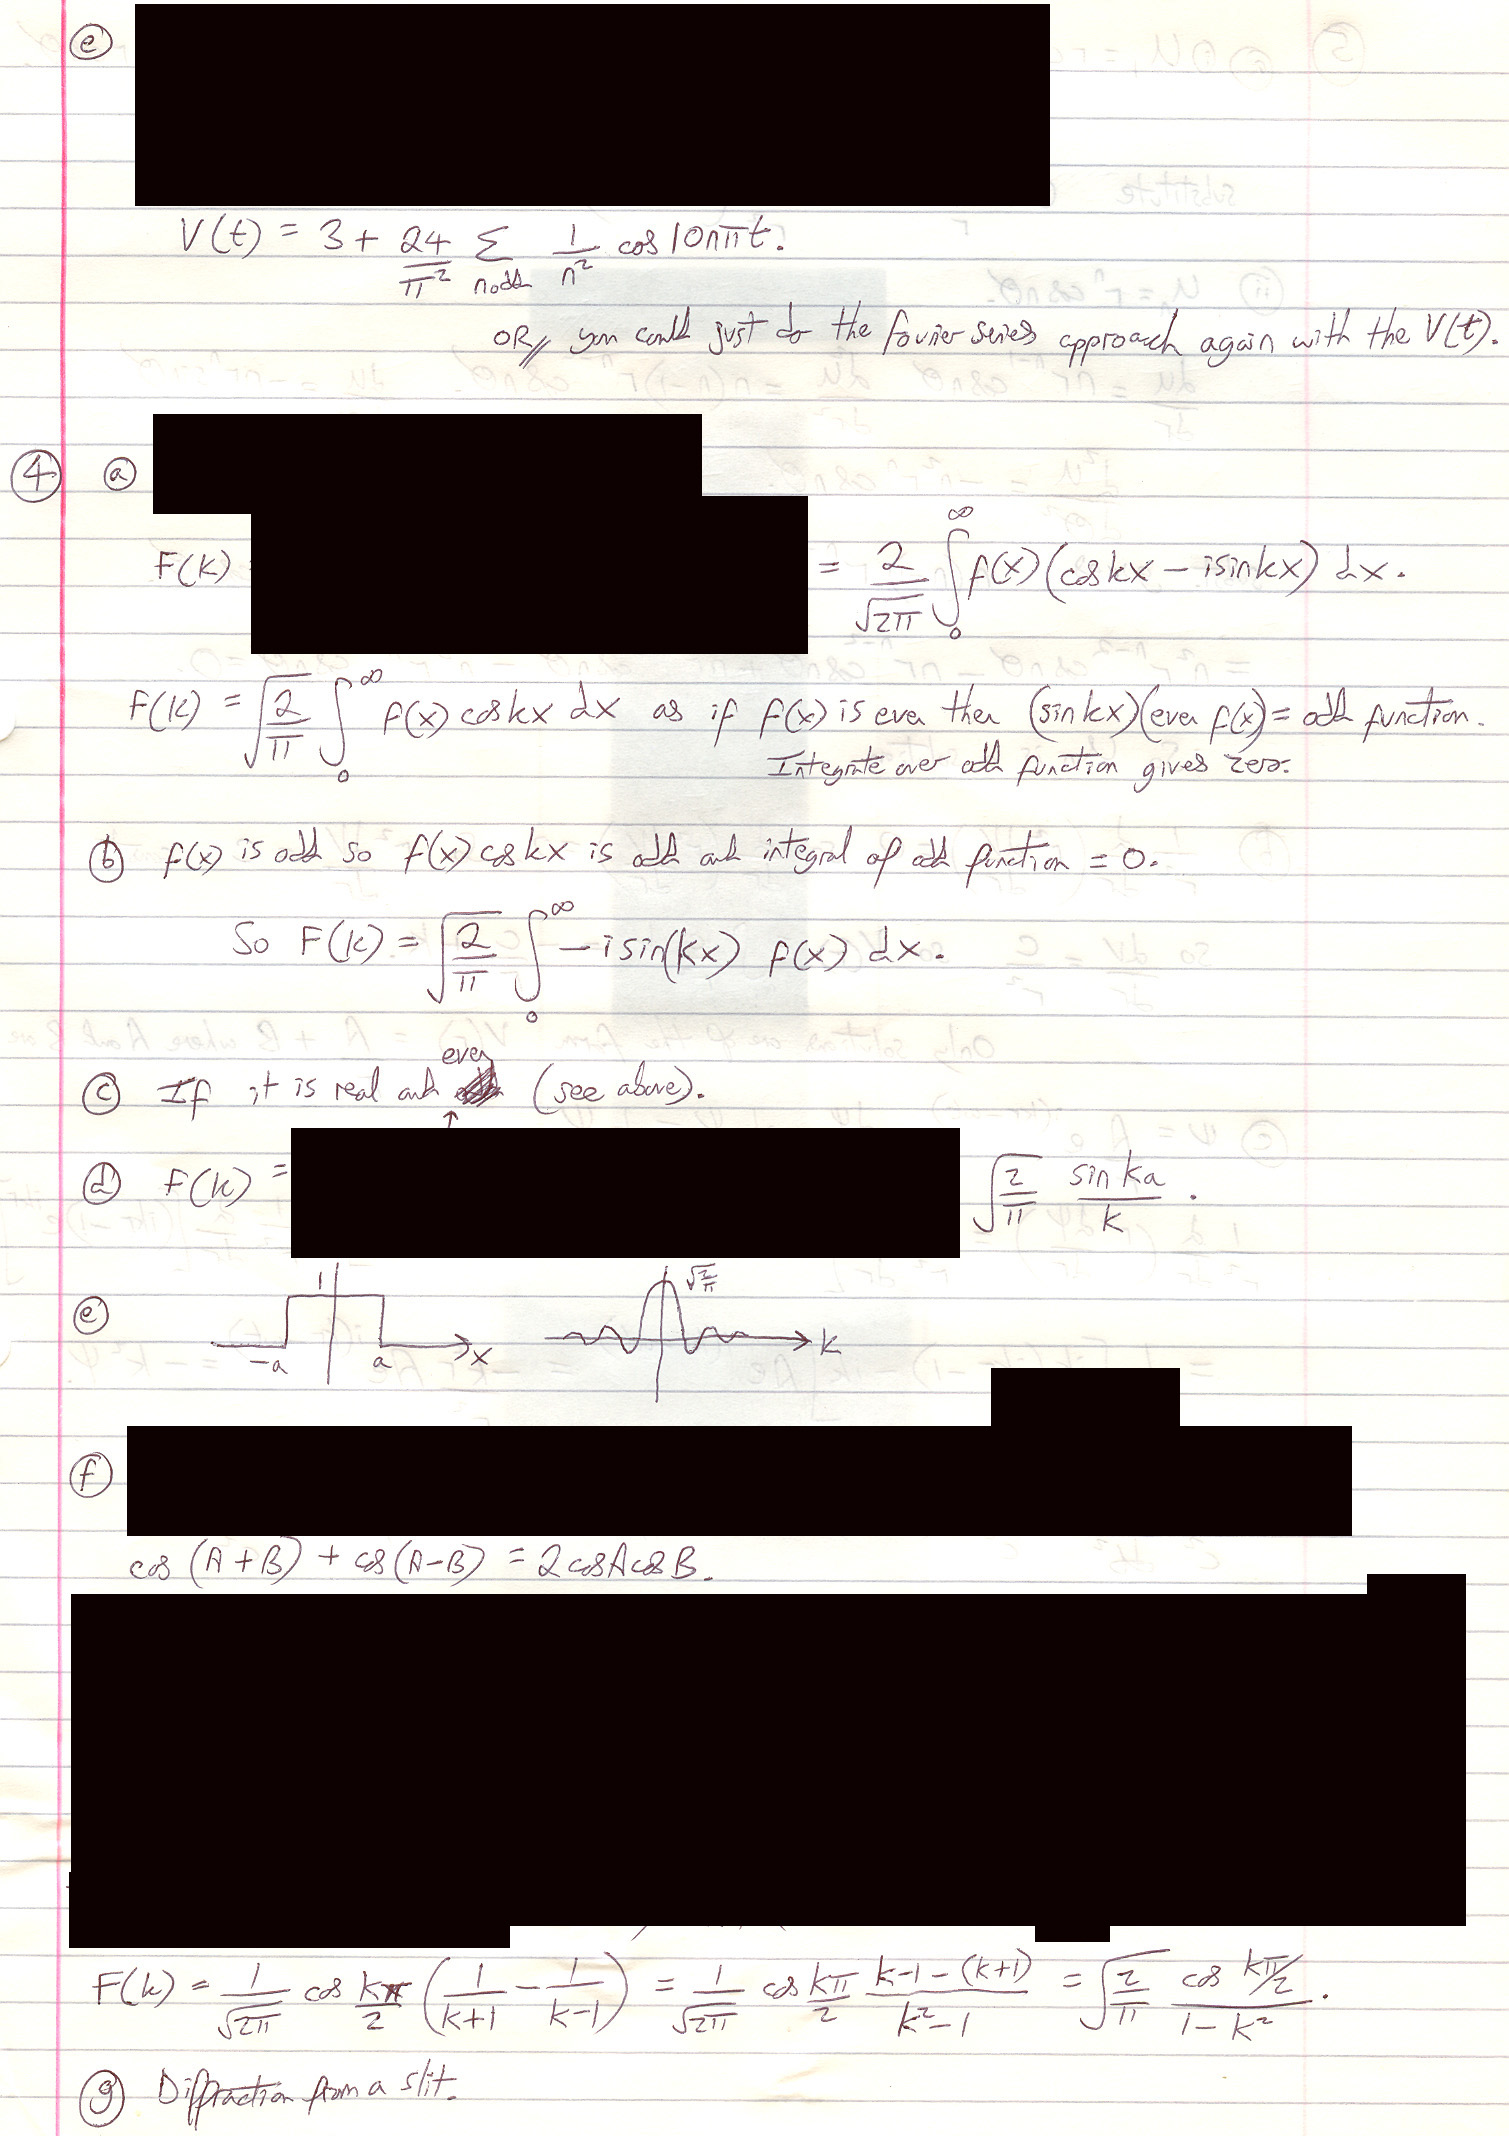 (e)
V(t) = 3 + 24/π² Σ n odd 1/n² cos 10nπt.
OR// you could just do the fourier series approach again with the V(t).
(4) (a)
F(k) = 2/√2π ∫₀^∞ f(x)(cos kx − i sin kx) dx.
F(k) = √2/π ∫₀^∞ f(x) cos kx dx as if f(x) is even then (sin kx)(even f(x)) = odd function.
Integrate over odd function gives zero.
(b) f(x) is odd so f(x) cos kx is odd and integral of odd function = 0.
So F(k) = √2/π ∫₀^∞ − i sin(kx) f(x) dx.
even
(c) If it is real and (see above).
(d) F(k) = √2/π sin ka/k .
(e) 1 −a a x √2/π k
(f)
cos (A+B) + cos (A−B) = 2 cos A cos B.
F(k) = 1/√2π cos kπ/2 (1/k+1 − 1/k−1) = 1/√2π cos kπ/2 k−1−(k+1)/k²−1 = √2/π cos kπ/2/1−k² .
(g) Diffraction from a slit.